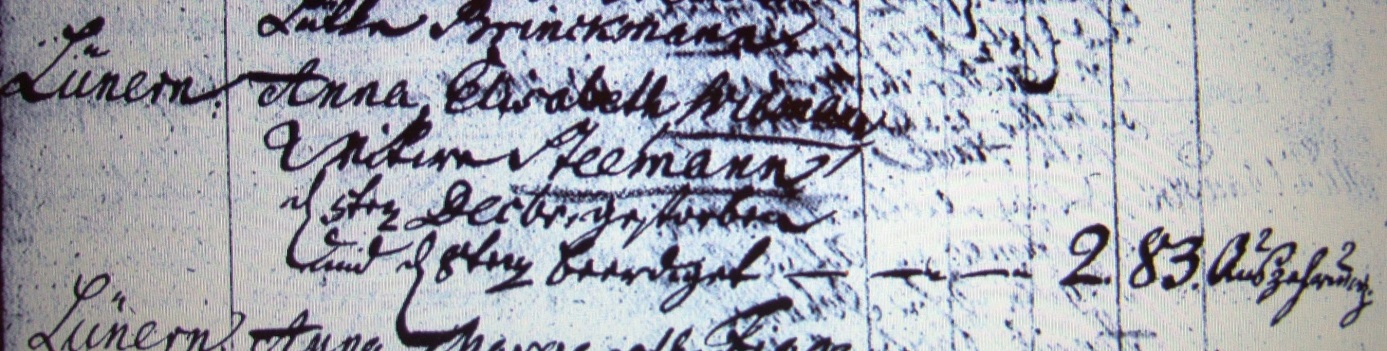 Lütke Brinckmann
Lünern. Anna Elisabeth
Wittwe Steemann
d 5ten Decbr. gestorben
und d 8ten beerdiget — — — 2. 83. Auszehrung
Lünern Anna